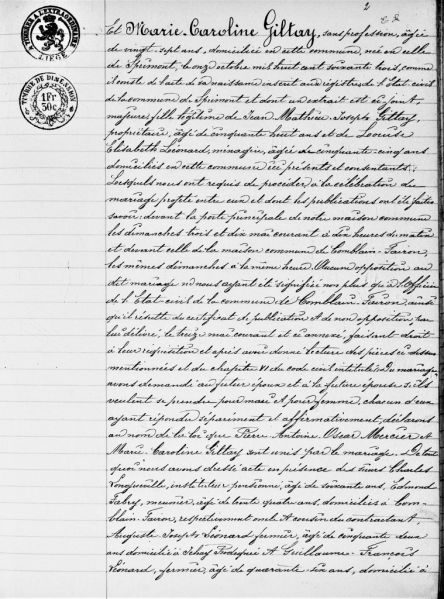 2
A TIMBRER A L'EXTRAORDINAIRE
LIEGE
TIMBRE DE DIMENSION
1 Fr
50c
Et Marie Caroline Giltay, sans profession, âgée
de vingt-sept ans, domiciliée en cette commune, née en celle
de Sprimont, le onze octobre mil huit cent soixante trois, comme
il conste de l'acte de sa naissance inscrit aux registres de l'Etat civil
de la commune de Sprimont et dont un extrait est ci joint,
majeure, fille légitime de Jean Mathieu Joseph Giltay,
propriétaire, âgé de cinquante huit ans et de Louise
Elisabeth Léonard, ménagère, âgée de cinquante-cinq ans
domiciliés en cette commune ici présents et consentants.
Lesquels nous ont requis de procéder à la célébration du
mariage projeté entre eux et dont les publications ont été faites
savoir: devant la porte principale de notre maison commune
les dimanches trois et dix mai courant à dix heures du matin
et devant celle de la maison commune de Comblain-Fairon,
les mêmes dimanches à la même heure. Aucune opposition au
dit mariage ne nous ayant été signifiée non plus qu'à l'Officier
de l'Etat civil de la commune de Comblain-Fairon, ainsi
qu'il résulte du certificat de publication et de non opposition, par
lui délivré, le treize mai courant et ci annexé, faisant droit
à leur réquisition et après avoir donné lecture des pièces ci dessus
mentionnées et du chapitre VI du code civil intitulé: Du mariage,
avons demandé au futur époux et à la future épouse s'ils
veulent se prendre pour mari et pour femme, chacun d'eux
ayant répondu séparément et affirmativement, déclarons
au nom de la loi que Pierre Antoine Oscar Mercier et
Marie Caroline Giltay sont unis par le mariage. De tout
quoi nous avons dressé acte en présence des sieurs Charles
instituteur pensionné, âgé de soixante ans, Edmond
Fabry, meunier, âgé de trente quatre ans, domiciliés à Com-
blain-Fairon, respectivement oncle et cousin du contractant,
Auguste Joseph Léonard fermier, âgé de cinquante deux
ans domicilié à et Guillaume-François
Léonard, fermier, âgé de quarante-six ans, domicilié à